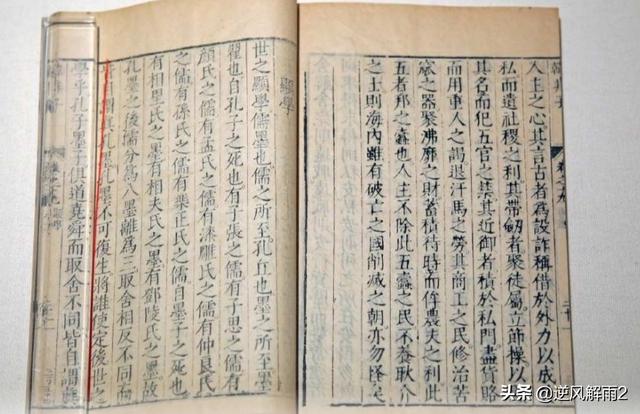 韓非子
人主之心其言古者為設詐稱借於外力以成
私而遺社稷之利其帶劒者聚徒屬立節操以
其名而犯五官之禁其近御者積於私門盡貨賂
而用重人之謁退汗馬之勞其商工之民修治苦
窳之器聚沸靡之財蓄積待時而侔農夫之利此
五者邦之蠹也人主不除此五蠹之民不養耿介
之士則海内雖有破亡之國削滅之朝亦勿怪矣
顯學
世之顯學儒墨也儒之所至孔丘也墨之所至墨
翟也自孔子之死也有子張之儒有子思之儒有
顔氏之儒有孟氏之儒有漆雕氏之儒有仲良氏
之儒有孫氏之儒有樂正氏之儒自墨子之死也
有相里氏之墨有相夫氏之墨有鄧陵氏之墨故
孔墨之後儒分為八墨離為三取舍相反不同而
謂真孔墨孔墨不可復生將誰使定後世之
學乎孔子墨子俱道堯舜而取舍不同皆自謂
头条 @逆风解雨2